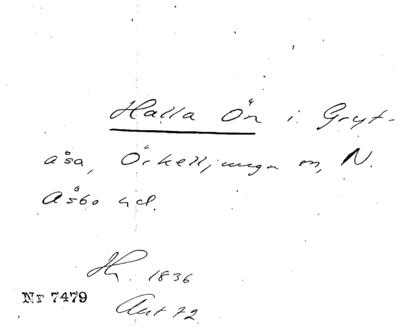 Halla Ön i Gryt-
åsa, Örkelljunga sn, N.
Åsbo hd.
Hk. 1836
Nr 7479
Avt 72